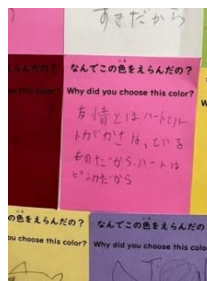 すきだから
えらんだの？
なんでこの色をえらんだの？
Why did you choose this color?
友情とはハートとル
カがかさなっている
ものだから。ハートは
ピンクだから
の色をえらんだの？
ou choose this color?
なんでこの色をえらんだの
Why did you choose this color?